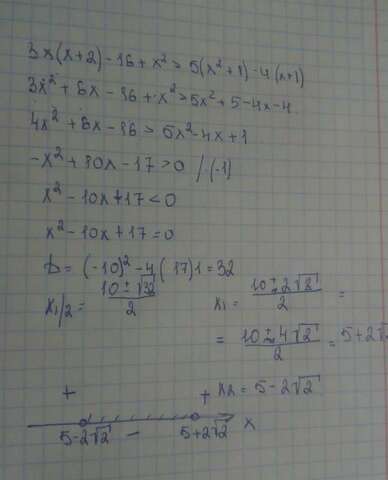 3x(x+2)-16+x²>5(x²+1)-4(x+1)
3x²+6x-16+x²>5x²+5-4x-4
4x²+6x-16>5x²-4x+1
-x²+10x-17>0 /·(-1)
x²-10x+17<0
x²-10x+17=0
D=(-10)²-4(17)1=32
x₁/₂=(10±√32)/2 x₁=(10±2√2)/2=
=(10±4√2)/2=5+2√2
x₂=5-2√2
+ - +
5-2√2 5+2√2 x